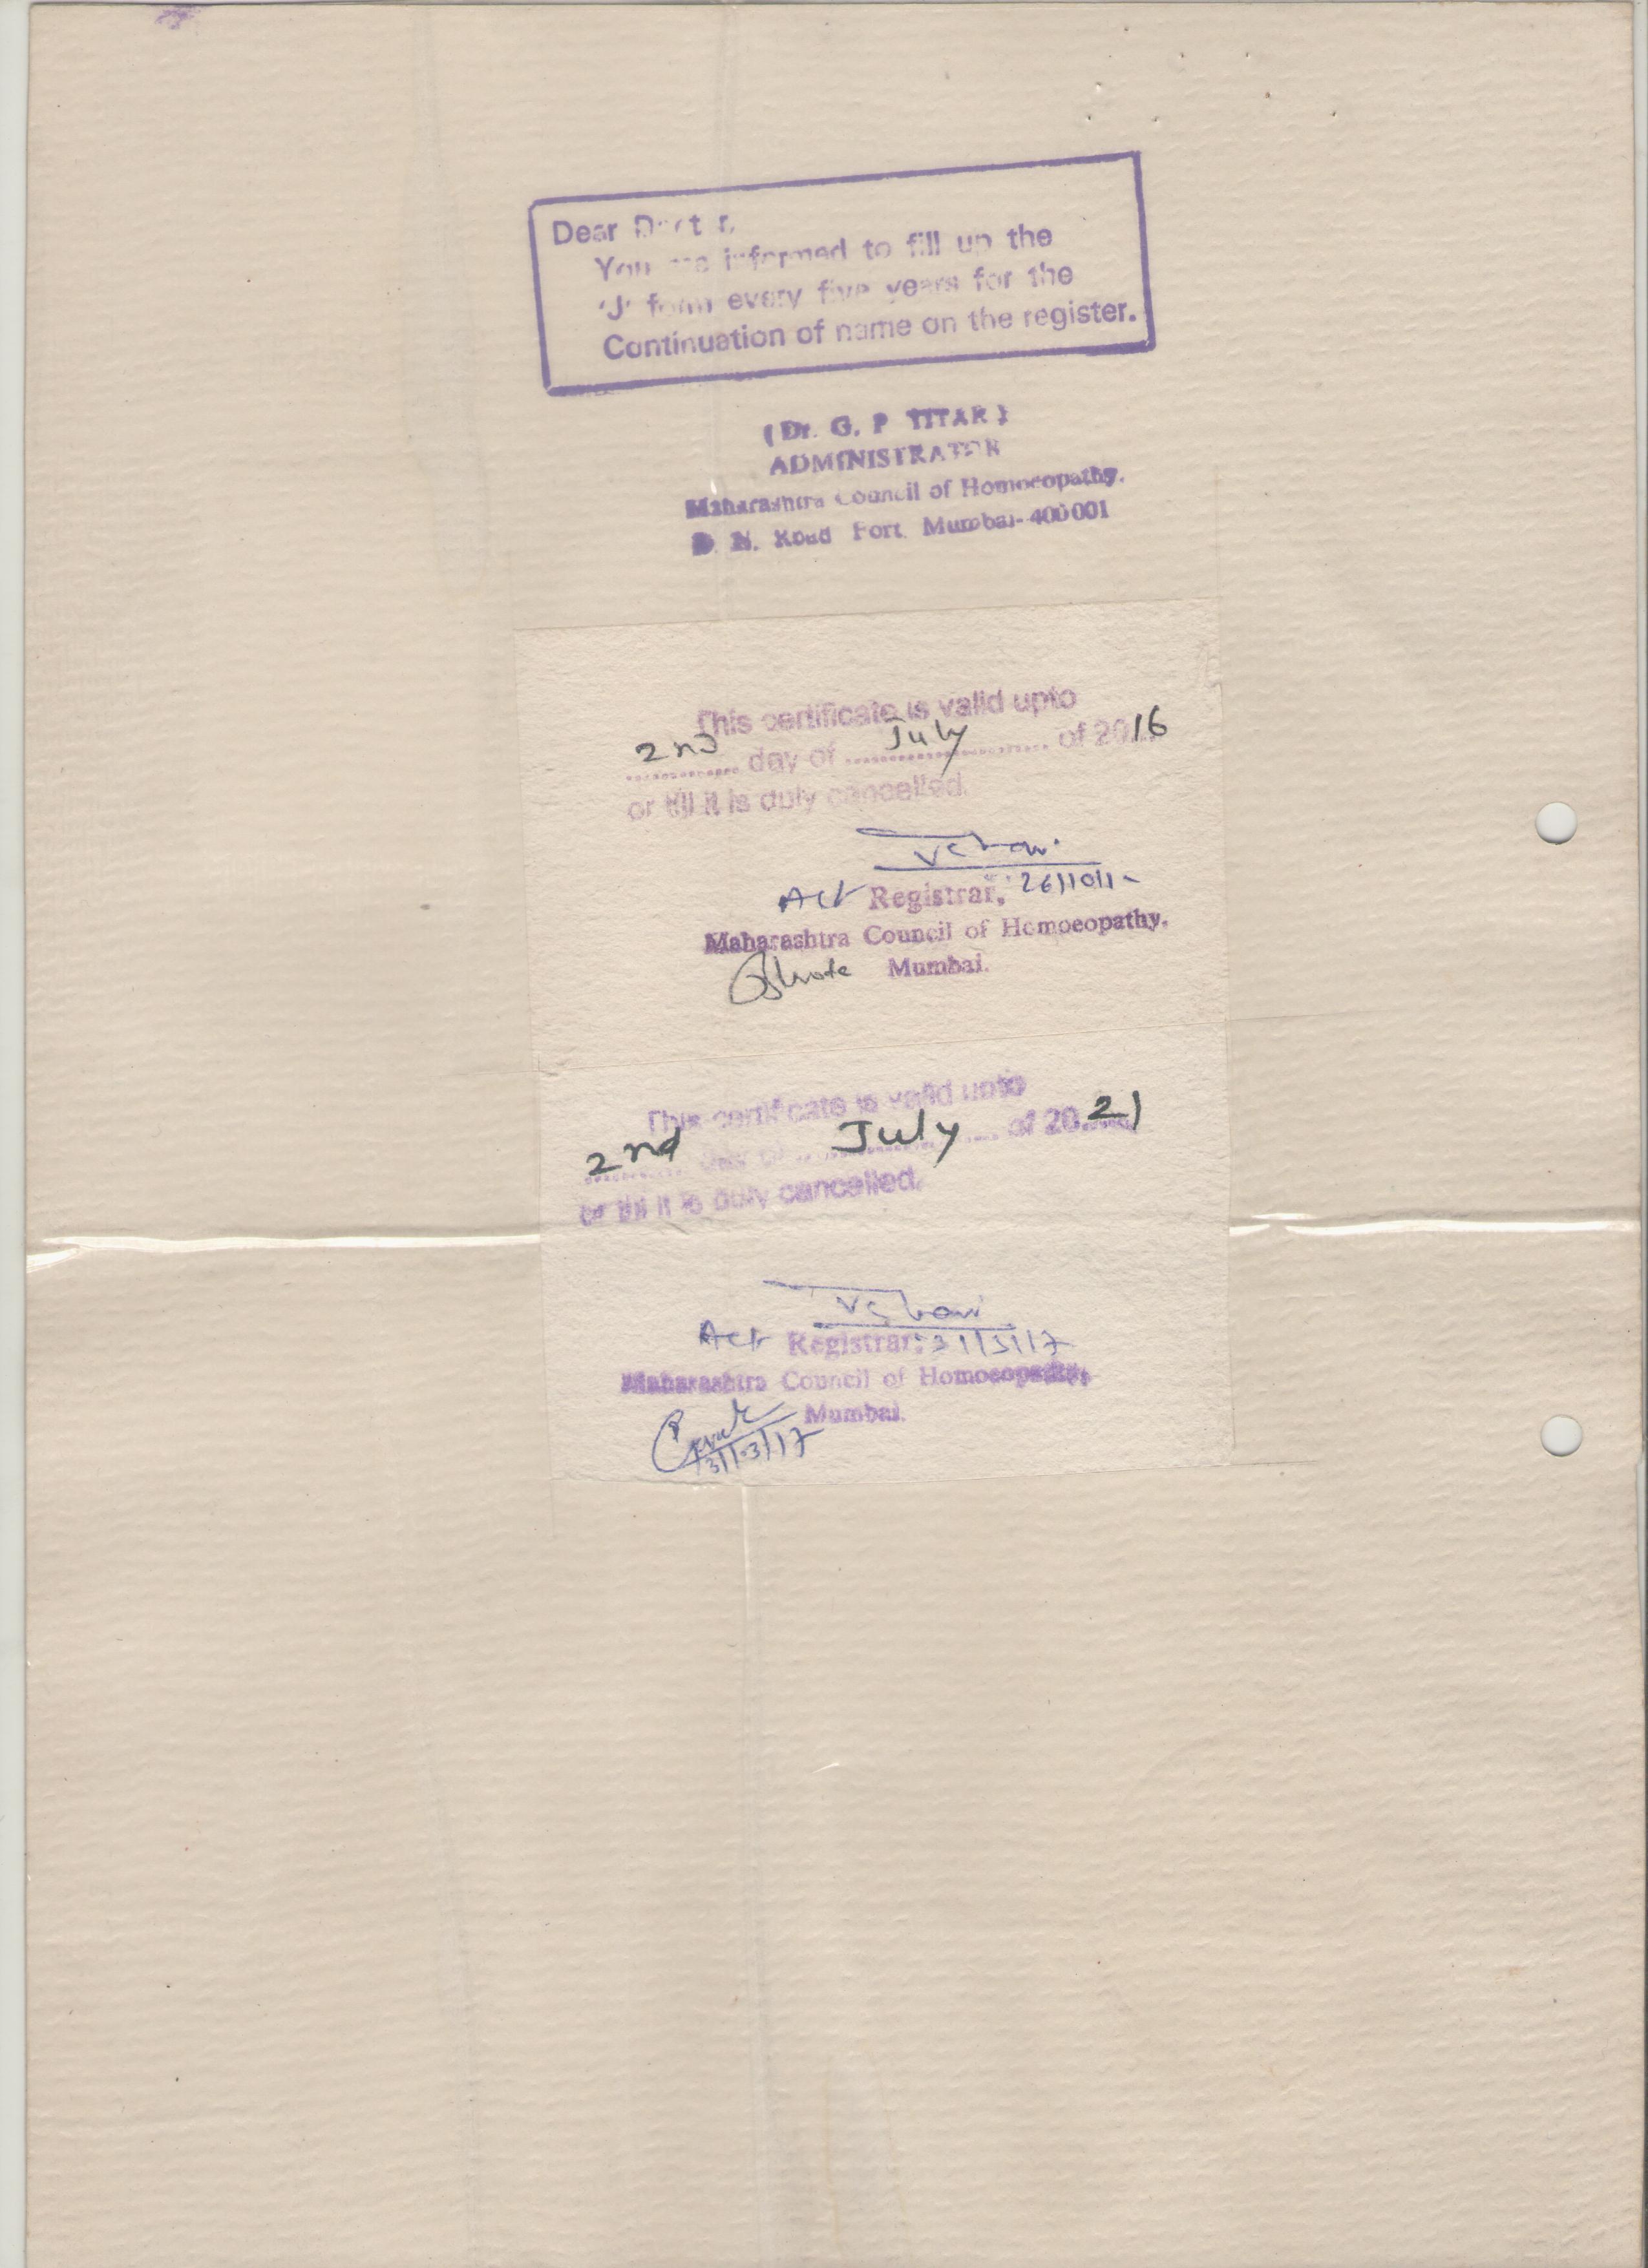 Dear
You informed to fill up the
'J' form every five years for the
Continuation of name on the register.
(Dr. G. P TITAR)
ADMINISTRATOR
Maharashtra Council of Homoeopathy.
D. N. Road Fort. Mumbai-400001
This certificate is valid upto
2nd day of July of 2016
or till it is duly cancelled.
Act Registrar, 26/10/1
Maharashtra Council of Homoeopathy.
Mumbai.
This certificate is valid upto
2nd day of July of 2021
or till it is duly cancelled.
Act Registrar, 31/3/17
Maharashtra Council of Homoeopathy,
Mumbai.
31/03/17